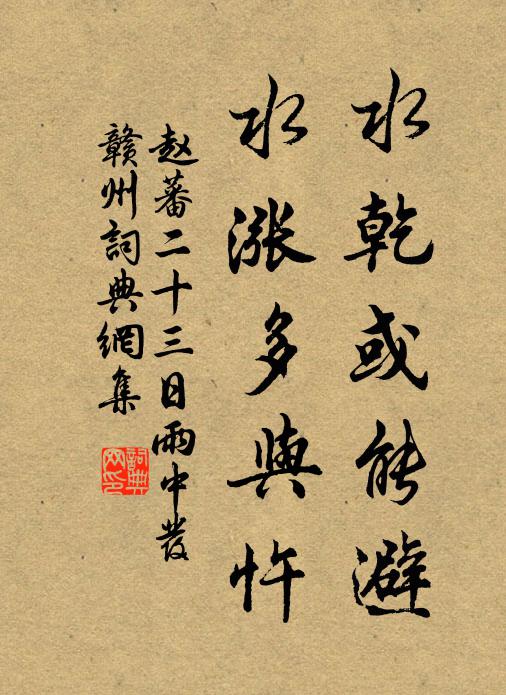 水乾或能避
水漲多與忤
赵蕃二十三日雨中发
赣州詞典網集
詞典网印